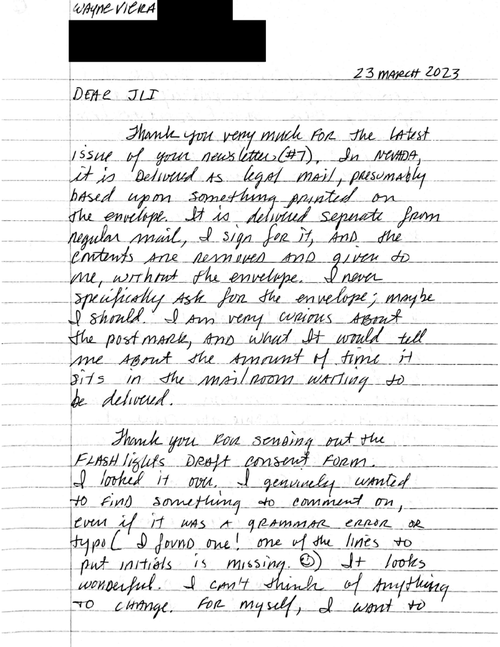 WAYNE VIERA
23 MARCH 2023
DEAR JLI
Thank you very much FOR the LAtest
issue of your newsletter (#7). In NEVADA,
it is DeliveRed AS legal mail, pResumably
based upon something pRinted on
the envelope. It is deliveRed sepeRate from
Regular mail, I sign foR it, AND the
contents ARe Removed AND given to
me, without the envelope. I neveR
specifically ask foR the envelope; maybe
I should. I Am veRy cuRious About
the postmaRk, AND what It would tell
me About the Amount of time it
sits in the mailRoom waiting to
be deliveRed.
Thank you FOR sending out the
FLASHlights DRAFT consent FORM.
I looked it oveR. I genuinely wanted
to FIND something to comment on,
even if it was A gRAMMAR eRROR OR
typo( I found one! one of the lines to
put initials is missing. ☺) It looks
wonderful. I can't think of Anything
to CHANGE. FOR myself, I want to